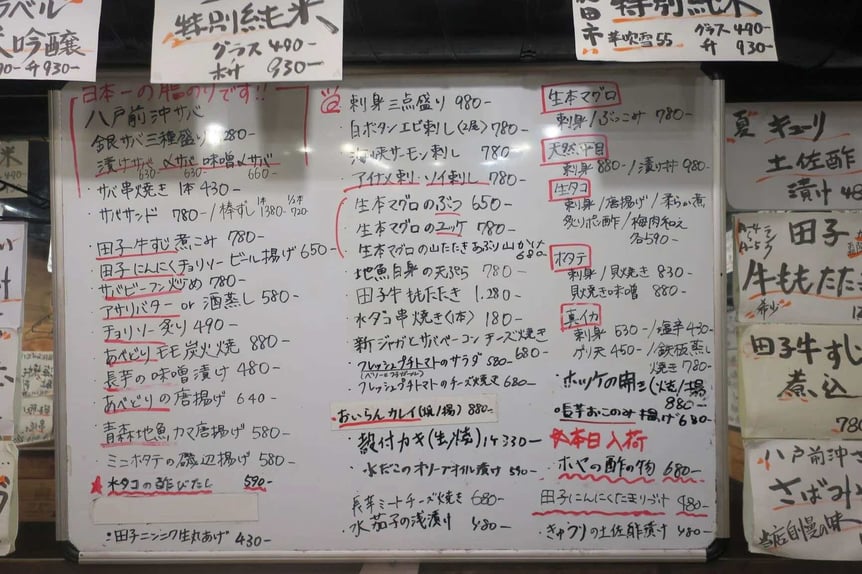 ラベル
大吟醸
90- 升 930-
特別純米
グラス 490-
升 930-
特別純米
羊吹雪55
グラス 490-
升 930-
日本一の脂のりです!!
八戸前沖サバ
金銀サバ三種盛り 1280-
漬けサバ 〆サバ 味噌〆サバ
630 630 660
サバ串焼き 1本 430-
サバサンド 780-/棒ずし 1本 1380- 1/2本 720
田子牛すじ煮こみ 780-
田子にんにくチョリソービール揚げ 650-
サバビーフン炒め 780-
アサリバター or 酒蒸し 580-
チョリソー炙り 490-
あべどりモモ炭火焼 880-
長芋の味噌漬け 480-
あべどりの唐揚げ 640-
青森地魚カマ唐揚げ 580-
ミニホタテの磯辺揚げ 580-
★水タコの酢びたし 590-
・田子ニンニク生丸あげ 430-
刺身三点盛り 980-
白ボタンエビ刺し(2尾) 780-
海峡サーモン刺し 780-
アイナメ刺し・ソイ刺し 780-
生本マグロのぶつ 650-
生本マグロのユッケ 780-
生本マグロの山たたきあぶり山かけ 680-
地魚白身の天ぷら 780-
田子牛ももたたき 1.280-
水ダコ串焼き(1本) 180-
新ジャガとサバベーコンチーズ焼き 680-
フレッシュプチトマトのサラダ 580-
フレッシュプチトマトのチーズ焼き 680-
おいらんカレイ(焼/揚) 880-
・殻付カキ(生/焼) 1ヶ330-
・水だこのオリーブオイル漬け 590-
長芋ミートチーズ焼き 680-
水茄子の浅漬け 480-
生本マグロ
刺身/ぶっこみ 780-
天然平目
刺身 880-/漬け丼 980-
生タコ
刺身/唐揚げ/柔らか煮
炙りポン酢/梅肉和え
各590-
ホタテ
刺身/貝焼き 830-
貝焼き味噌 880-
真イカ
刺身 530-/塩辛 430-
ゲソ天 450-/鉄板蒸し焼き 780-
・ホッケの開き(焼/揚) 880-
・長芋おこのみ揚げ 680-
本日入荷
ホヤの酢の物 680-
田子にんにくたまりづけ 480-
・きゅうりの土佐酢漬け 480-
夏 キューリ
土佐酢
漬け
田子
牛ももたたき
希少
田子牛すじ
煮込
780
八戸前沖さ
さばみ
当店自慢の味